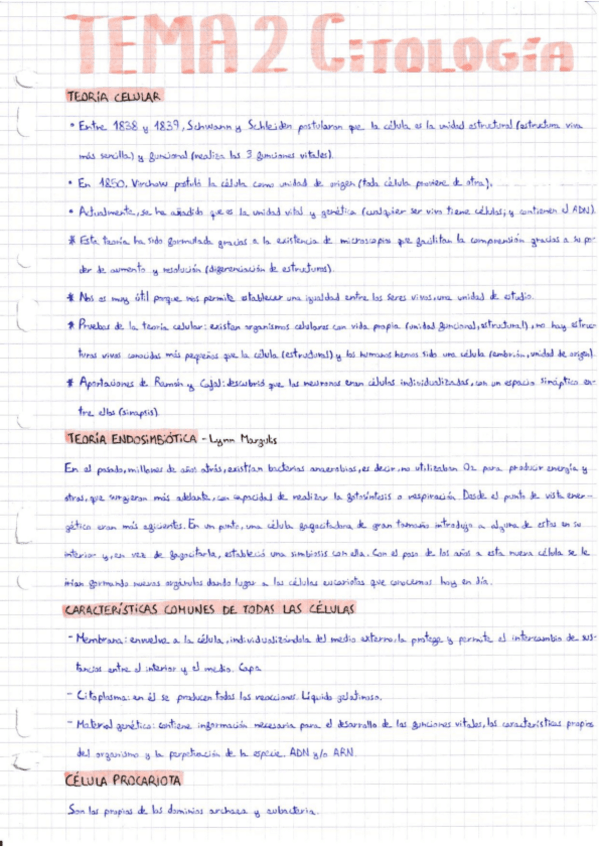 TEMA 2 CITOLOGÍA
TEORÍA CELULAR
• Entre 1838 y 1839, Schwann y Schleiden postularon que la célula es la unidad estructural (estructura viva
más sencilla) y funcional (realiza las 3 funciones vitales).
• En 1850, Virchow postuló la célula como unidad de origen (toda célula proviene de otra).
• Actualmente, se ha añadido que es la unidad vital y genética (cualquier ser vivo tiene células, y contienen el ADN).
* Esta teoría ha sido formulada gracias a la existencia de microscopios que facilitan la comprensión gracias a su po-
der de aumento y resolución (diferenciación de estructuras).
* Nos es muy útil porque nos permite establecer una igualdad entre los seres vivos, una unidad de estudio.
* Pruebas de la teoría celular: existen organismos celulares con vida propia (unidad funcional, estructural), no hay estruc-
turas vivas conocidas más pequeñas que la célula (estructural) y los humanos hemos sido una célula (embrión, unidad de origen).
* Aportaciones de Ramón y Cajal: descubrió que las neuronas eran células individualizadas, con un espacio sináptico en-
tre ellas (sinapsis).
TEORÍA ENDOSIMBIÓTICA - Lynn Margulis
En el pasado, millones de años atrás, existían bacterias anaerobias, es decir, no utilizaban O2 para producir energía y
otras, que surgieron más adelante, con capacidad de realizar la fotosíntesis o respiración. Desde el punto de vista ener-
gético eran más eficientes. En un punto, una célula fagocitadora de gran tamaño introdujo a alguna de estas en su
interior y, en vez de fagocitarla, estableció una simbiosis con ella. Con el paso de los años a esta nueva célula se le
irían formando nuevos orgánulos dando lugar a las células eucariotas que conocemos hoy en día.
CARACTERÍSTICAS COMUNES DE TODAS LAS CÉLULAS
- Membrana: envuelve a la célula, individualizándola del medio externo, la protege y permite el intercambio de sus-
tancias entre el interior y el medio. Capa
- Citoplasma: en él se producen todas las reacciones. Líquido gelatinoso.
- Material genético: contiene información necesaria para el desarrollo de las funciones vitales, las características propias
del organismo y la perpetuación de la especie. ADN y/o ARN.
CÉLULA PROCARIOTA
Son las propias de los dominios archaea y eubacteria.